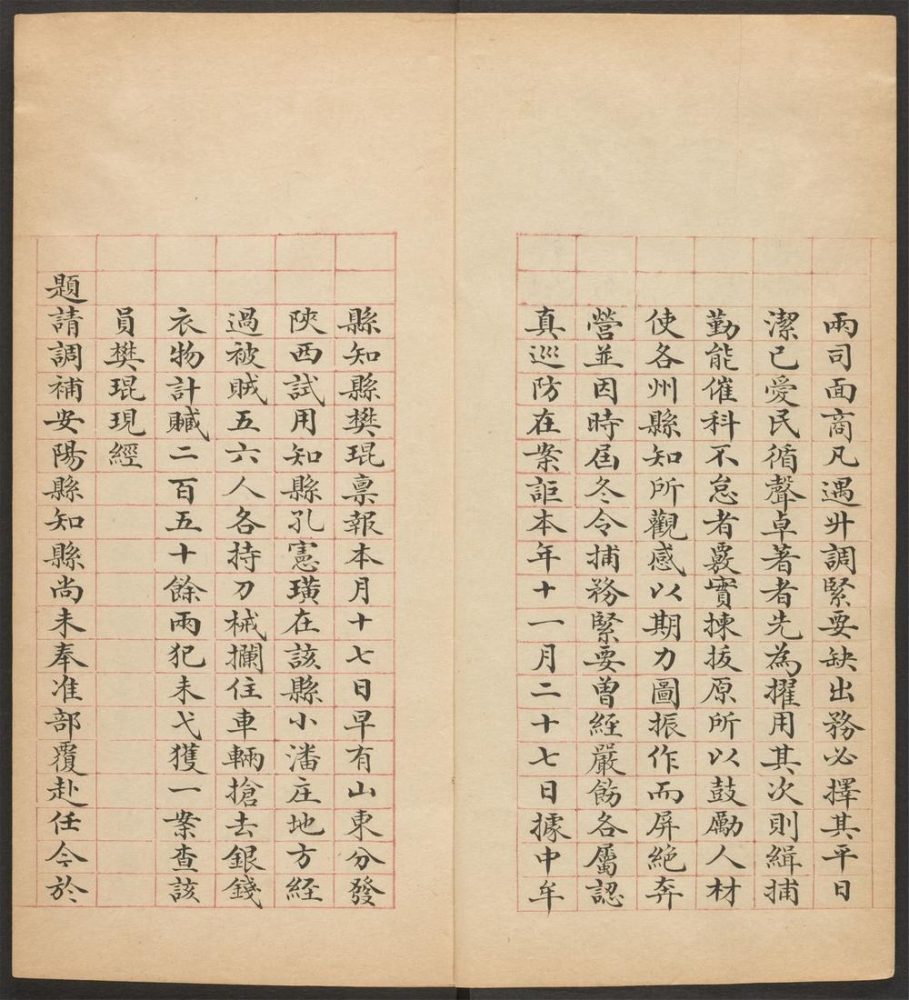 兩司面商凡遇升調緊要缺出務必擇其平日
潔已愛民循聲卓著者先為擢用其次則緝捕
勤能催科不怠者覈實揀拔原所以鼓勵人材
使各州縣知所觀感以期力圖振作而屏絕奔
營並因時屆冬令捕務緊要曾經嚴飭各屬認
真巡防在案詎本年十一月二十七日據中牟
縣知縣樊琨禀報本月十七日早有山東分發
陝西試用知縣孔憲璜在該縣小潘庄地方經
過被賊五六人各持刀械攔住車輛搶去銀錢
衣物計贓二百五十餘兩犯未弋獲一案查該
員樊琨現經
題請調補安陽縣知縣尚未奉准部覆赴任今於